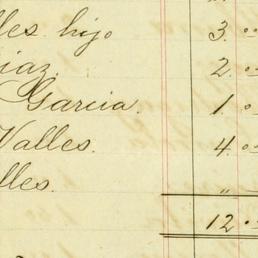 lles hijo 3.00
iaz. 2.0
Garcia. 1.0
Valles. 4.0
lles. "
12.0